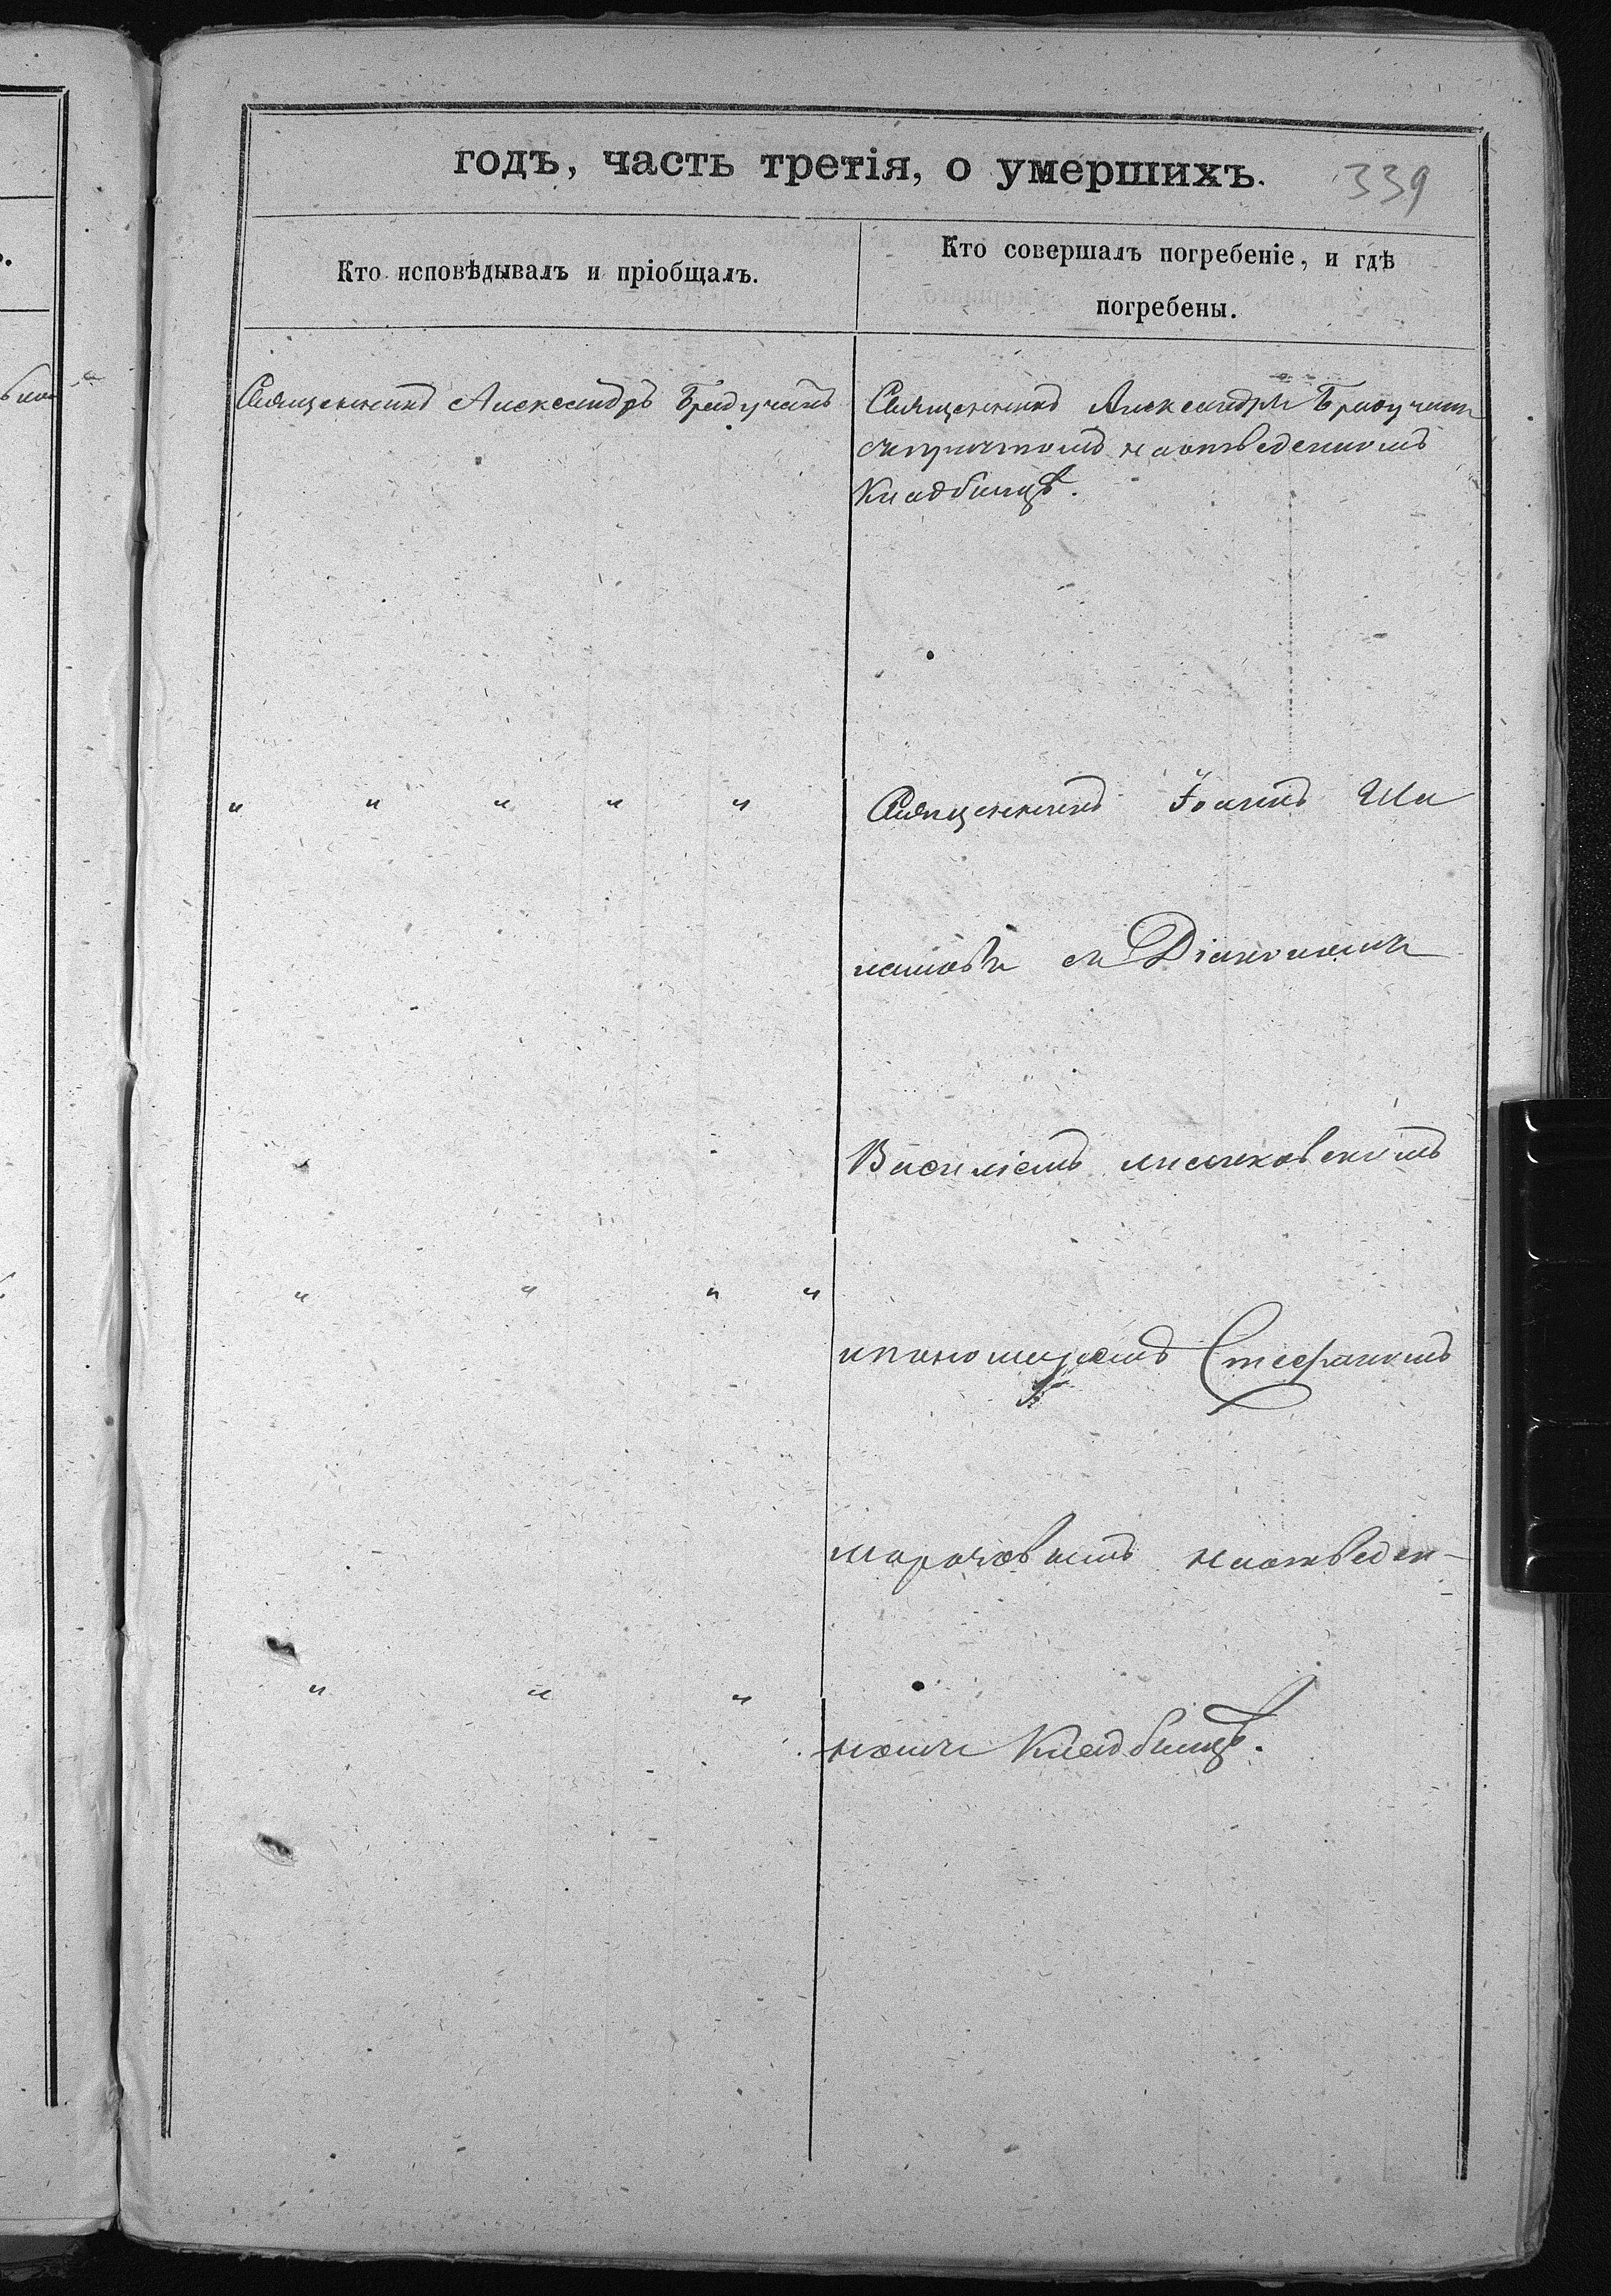 годъ, часть третія, о умершихъ.
339
Кто исповѣдывалъ и пріобщалъ.
Кто совершалъ погребеніе, и гдѣ
погребены.
Священникъ Александръ
Священникъ Александръ
спричтомъ наотведенномъ
Кладбищѣ.
" " " " "
Священникъ Іоаннъ
съ Діакономъ
Василіемъ
" " " "
ипономаремъ Стефаномъ
наотведен-
" " "
номъ Кладбищѣ.